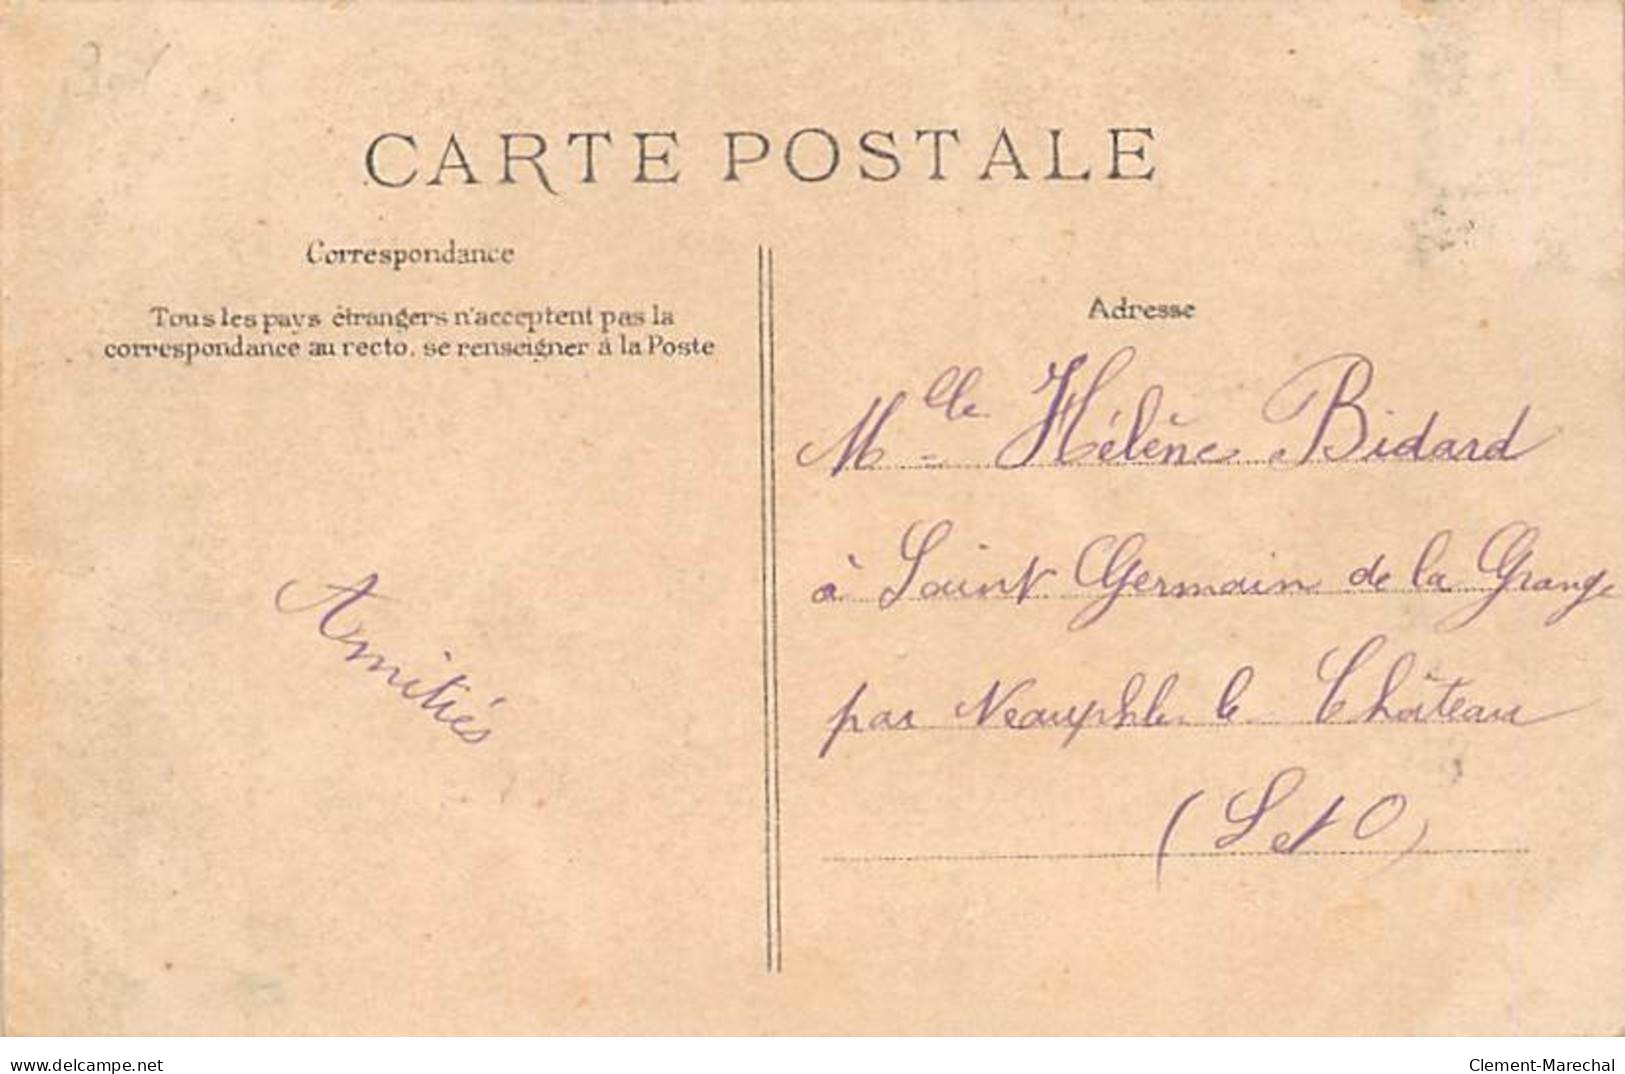 CARTE POSTALE
Correspondance
Tous les pays étrangers n'acceptent pas la
correspondance au recto, se renseigner à la Poste
Amitiés
Adresse
Mlle Hélène Bidard
à Saint Germain de la Grange
par Neauphle le Château
(S et O)
www.delcampe.net
Clement-Marechal